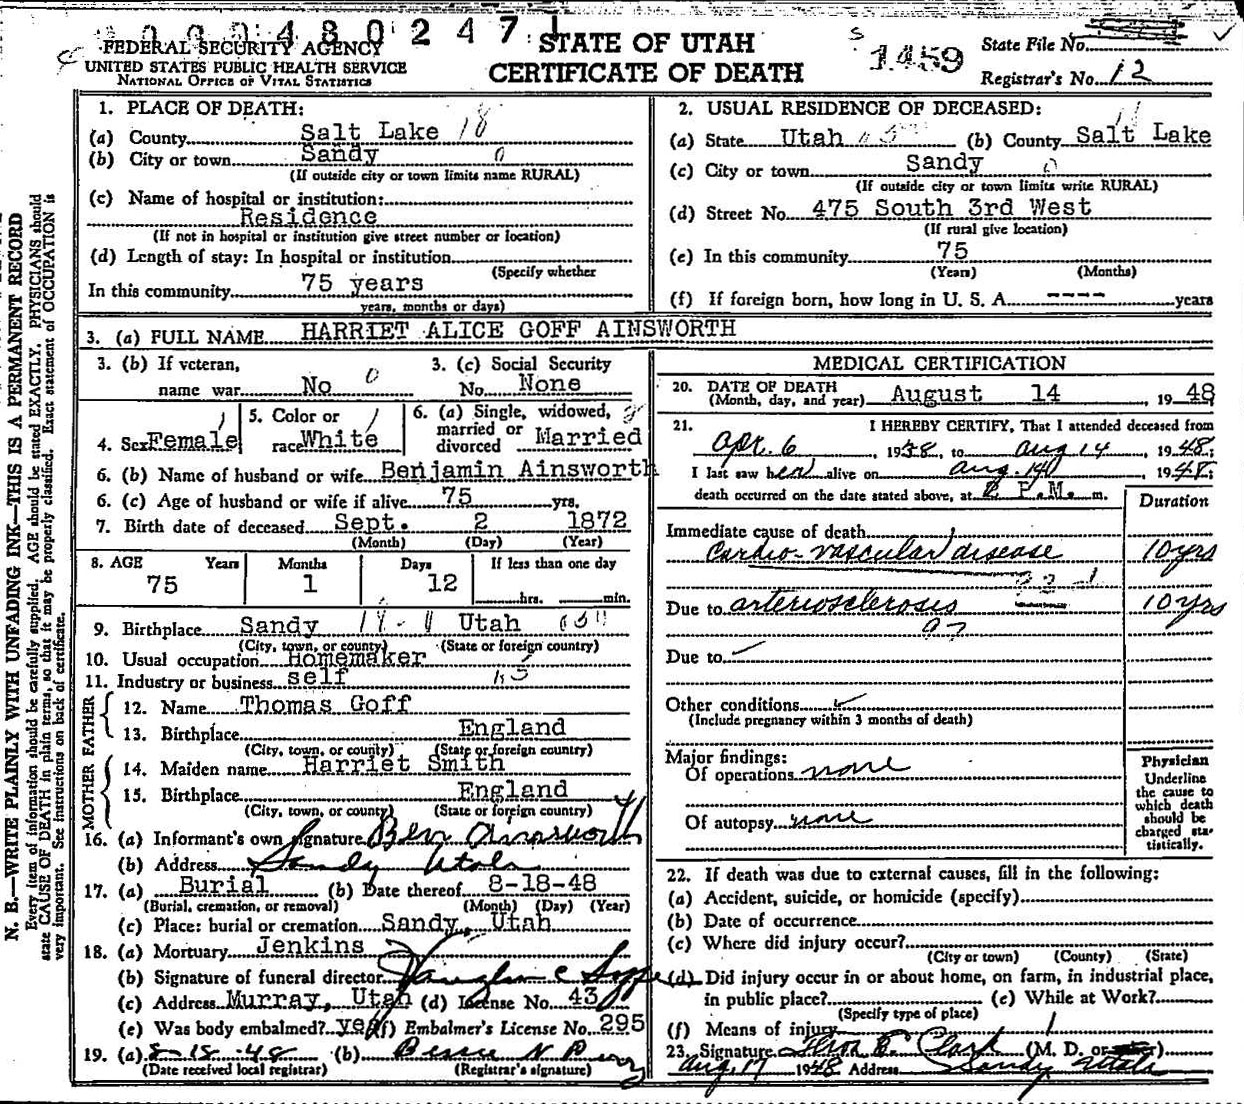 0000480247 1
FEDERAL SECURITY AGENCY
UNITED STATES PUBLIC HEALTH SERVICE
NATIONAL OFFICE OF VITAL STATISTICS
STATE OF UTAH
CERTIFICATE OF DEATH
S
1459
State File No.
Registrar's No. 12
N. B.—WRITE PLAINLY WITH UNFADING INK—THIS IS A PERMANENT RECORD
Every item of information should be carefully supplied. AGE should be stated EXACTLY. PHYSICIANS should
state CAUSE OF DEATH in plain terms, so that it may be properly classified. Exact statement of OCCUPATION is
very important. See instructions on back of certificate.
1. PLACE OF DEATH:
(a) County Salt Lake 18
(b) City or town Sandy 0
(If outside city or town limits name RURAL)
(c) Name of hospital or institution:
Residence
(If not in hospital or institution give street number or location)
(d) Length of stay: In hospital or institution
(Specify whether
In this community 75 years
years, months or days)
2. USUAL RESIDENCE OF DECEASED:
(a) State Utah (b) County Salt Lake
(c) City or town Sandy 0
(If outside city or town limits write RURAL)
(d) Street No. 475 South 3rd West
(If rural give location)
(e) In this community 75
(Years) (Months)
(f) If foreign born, how long in U. S. A. ---- years
3. (a) FULL NAME HARRIET ALICE GOFF AINSWORTH
3. (b) If veteran,
name war No 0
3. (c) Social Security
No. None
4. Sex Female 1
5. Color or
race White 1
6. (a) Single, widowed,
married or
divorced Married
6. (b) Name of husband or wife Benjamin Ainsworth
6. (c) Age of husband or wife if alive 75 yrs.
7. Birth date of deceased Sept. 2 1872
(Month) (Day) (Year)
8. AGE Years Months Days If less than one day
75 1 12 hrs. min.
9. Birthplace Sandy Utah
(City, town, or county) (State or foreign country)
10. Usual occupation Homemaker
11. Industry or business self
FATHER
12. Name Thomas Goff
13. Birthplace England
(City, town, or county) (State or foreign country)
MOTHER
14. Maiden name Harriet Smith
15. Birthplace England
(City, town, or county) (State or foreign country)
16. (a) Informant's own signature Ben Ainsworth
(b) Address Sandy Utah
17. (a) Burial (b) Date thereof 8-18-48
(Burial, cremation, or removal) (Month) (Day) (Year)
(c) Place: burial or cremation Sandy, Utah
18. (a) Mortuary Jenkins
(b) Signature of funeral director
(c) Address Murray, Utah (d) License No. 43
(e) Was body embalmed? yes (f) Embalmer's License No. 295
19. (a) 8-18-48 (b)
(Date received local registrar) (Registrar's signature)
MEDICAL CERTIFICATION
20. DATE OF DEATH
(Month, day, and year) August 14, 1948
21. I HEREBY CERTIFY, That I attended deceased from
Apr. 6 1938, to Aug 14, 1948;
I last saw her alive on Aug. 14, 1948;
death occurred on the date stated above, at 2 P.M. m.
Duration
Immediate cause of death
Cardio-vascular disease 10 yrs
Due to arteriosclerosis 10 yrs
97
Due to
Other conditions
(Include pregnancy within 3 months of death)
Major findings:
Of operations none
Of autopsy none
Physician
Underline
the cause to
which death
should be
charged sta-
tistically.
22. If death was due to external causes, fill in the following:
(a) Accident, suicide, or homicide (specify)
(b) Date of occurrence
(c) Where did injury occur?
(City or town) (County) (State)
(d) Did injury occur in or about home, on farm, in industrial place,
in public place? (e) While at Work?
(Specify type of place)
(f) Means of injury
23. Signature Clark (M. D. or
Aug. 17 1948 Address Sandy Utah